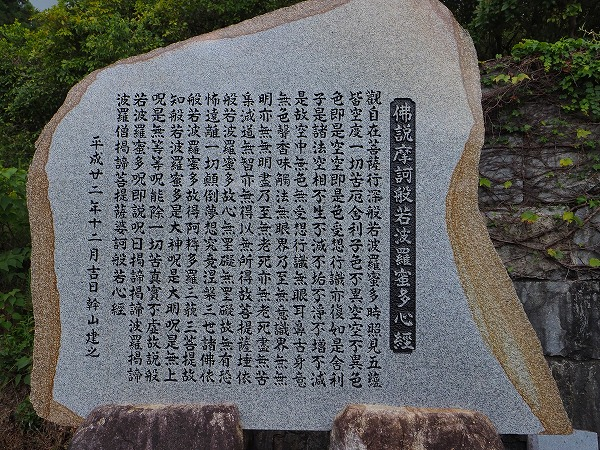 佛説摩訶般若波羅蜜多心經
觀自在菩薩行深般若波羅蜜多時照見五蘊
皆空度一切苦厄舎利子色不異空空不異色
色即是空空即是色受想行識亦復如是舎利
子是諸法空相不生不滅不垢不浄不増不減
是故空中無色無受想行識無眼耳鼻舌身意
無色聲香味觸法無眼界乃至無意識界無無
明亦無無明盡乃至無老死亦無老死盡無苦
集滅道無智亦無得以無所得故菩提薩埵依
般若波羅蜜多故心無罣礙無罣礙故無有恐
怖遠離一切顛倒夢想究竟涅槃三世諸佛依
般若波羅蜜多故得阿耨多羅三藐三菩提故
知般若波羅蜜多是大神呪是大明呪是無上
呪是無等等呪能除一切苦真實不虚故説般
若波羅蜜多呪即説呪曰揭諦揭諦波羅揭諦
波羅僧揭諦菩提薩婆訶般若心經
平成廿二年十二月吉日 幹山建之